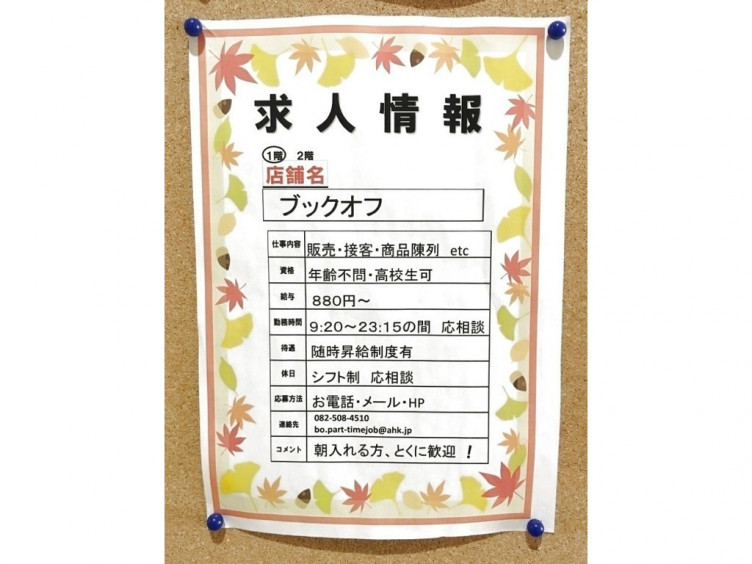 求人情報
1階 2階
店舗名
ブックオフ
仕事内容 販売・接客・商品陳列 etc
資格 年齢不問・高校生可
給与 880円～
勤務時間 9:20～23:15の間 応相談
待遇 随時昇給制度有
休日 シフト制 応相談
応募方法 お電話・メール・HP
連絡先 082-508-4510
bo.part-timejob@ahk.jp
コメント 朝入れる方、とくに歓迎！